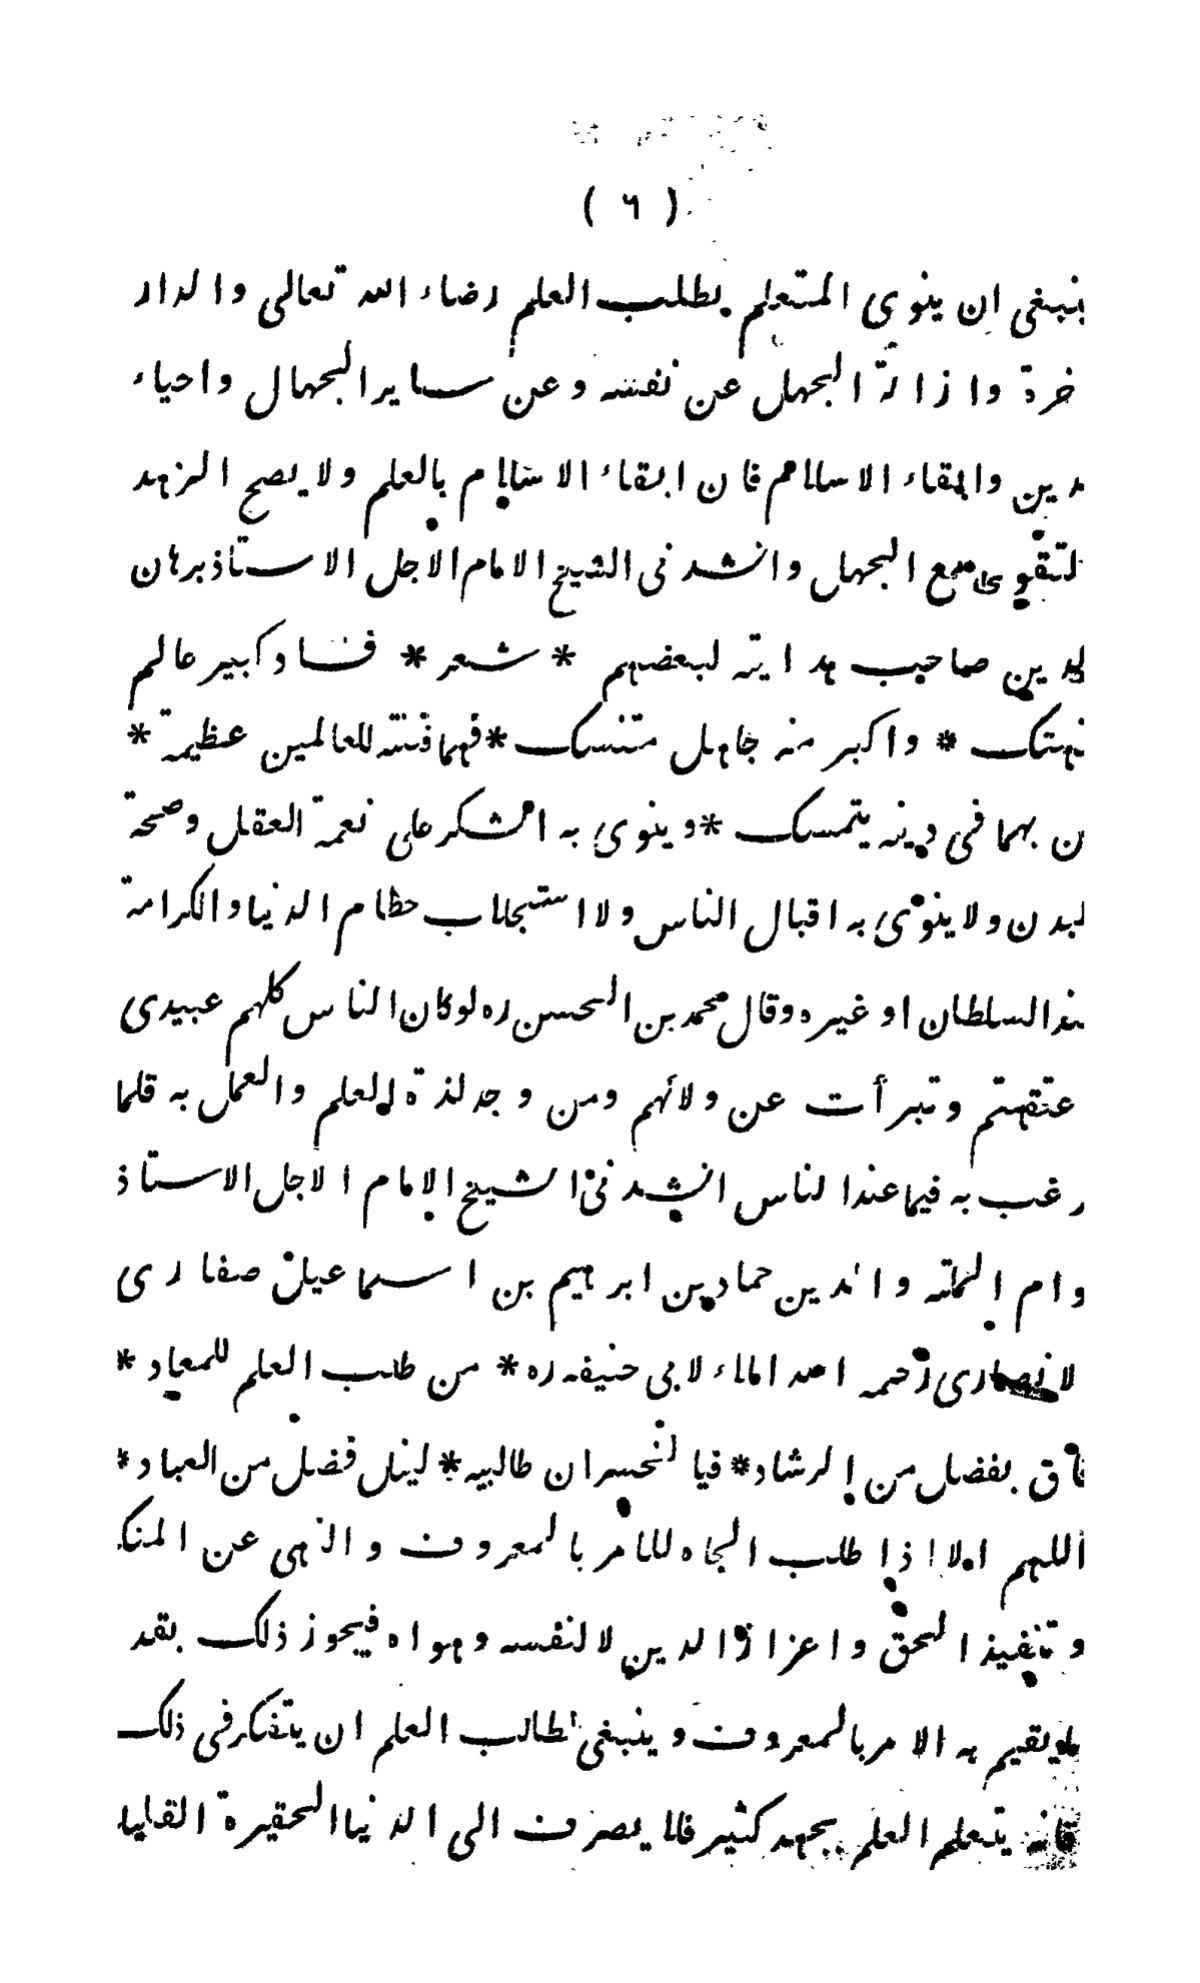 ( ٦ )
ينبغى ان ينوى المتعلم بطلب العلم رضاء الله تعالى والدار
خرة وازالة الجهل عن نفسه وعن ساير الجهال واحياء
دين وابقاء الاسلام فان ابقاء الاسلام بالعلم ولا يصح الزهد
لتقوى مع الجهل وانشدنى الشيخ الامام الاجل الاستاذ برهان
لدين صاحب هداية لبعضهم * شعر * فساد كبير عالم
تهتك * واكبر منه جاهل متنسك * فهما فتنة للعالمين عظيمة *
ن بهما فى دينه يتمسك * وينوى به الشكر على نعمة العقل وصحة
لبدن ولا ينوى به اقبال الناس ولا استجلاب حطام الدنيا والكرامة
ند السلطان او غيره وقال محمد بن الحسن ره لو كان الناس كلهم عبيدى
عتقتهم وتبرأت عن ولائهم ومن وجد لذة العلم والعمل به قلما
رغب به فيما عند الناس انشدنى الشيخ الامام الاجل الاستاذ
وام الملة والدين حماد بن ابرهيم بن اسماعيل صفارى
لانصارى رحمه الله املاء لابى حنيفه ره * من طلب العلم للمعاد *
فاق بفضل من الرشاد * فيا لخسران طالبيه * لينل فضل من العباد *
اللهم الا اذا طلب الجاه للامر بالمعروف والنهى عن المنك
وتنفيذ الحق واعزاز الدين لا لنفسه وهواه فيجوز ذلك بقد
يقيم به الامر بالمعروف وينبغى لطالب العلم ان يتفكر فى ذلك
فانه يتعلم العلم بجهد كثير فلا يصرف الى الدنيا الحقيرة القليل